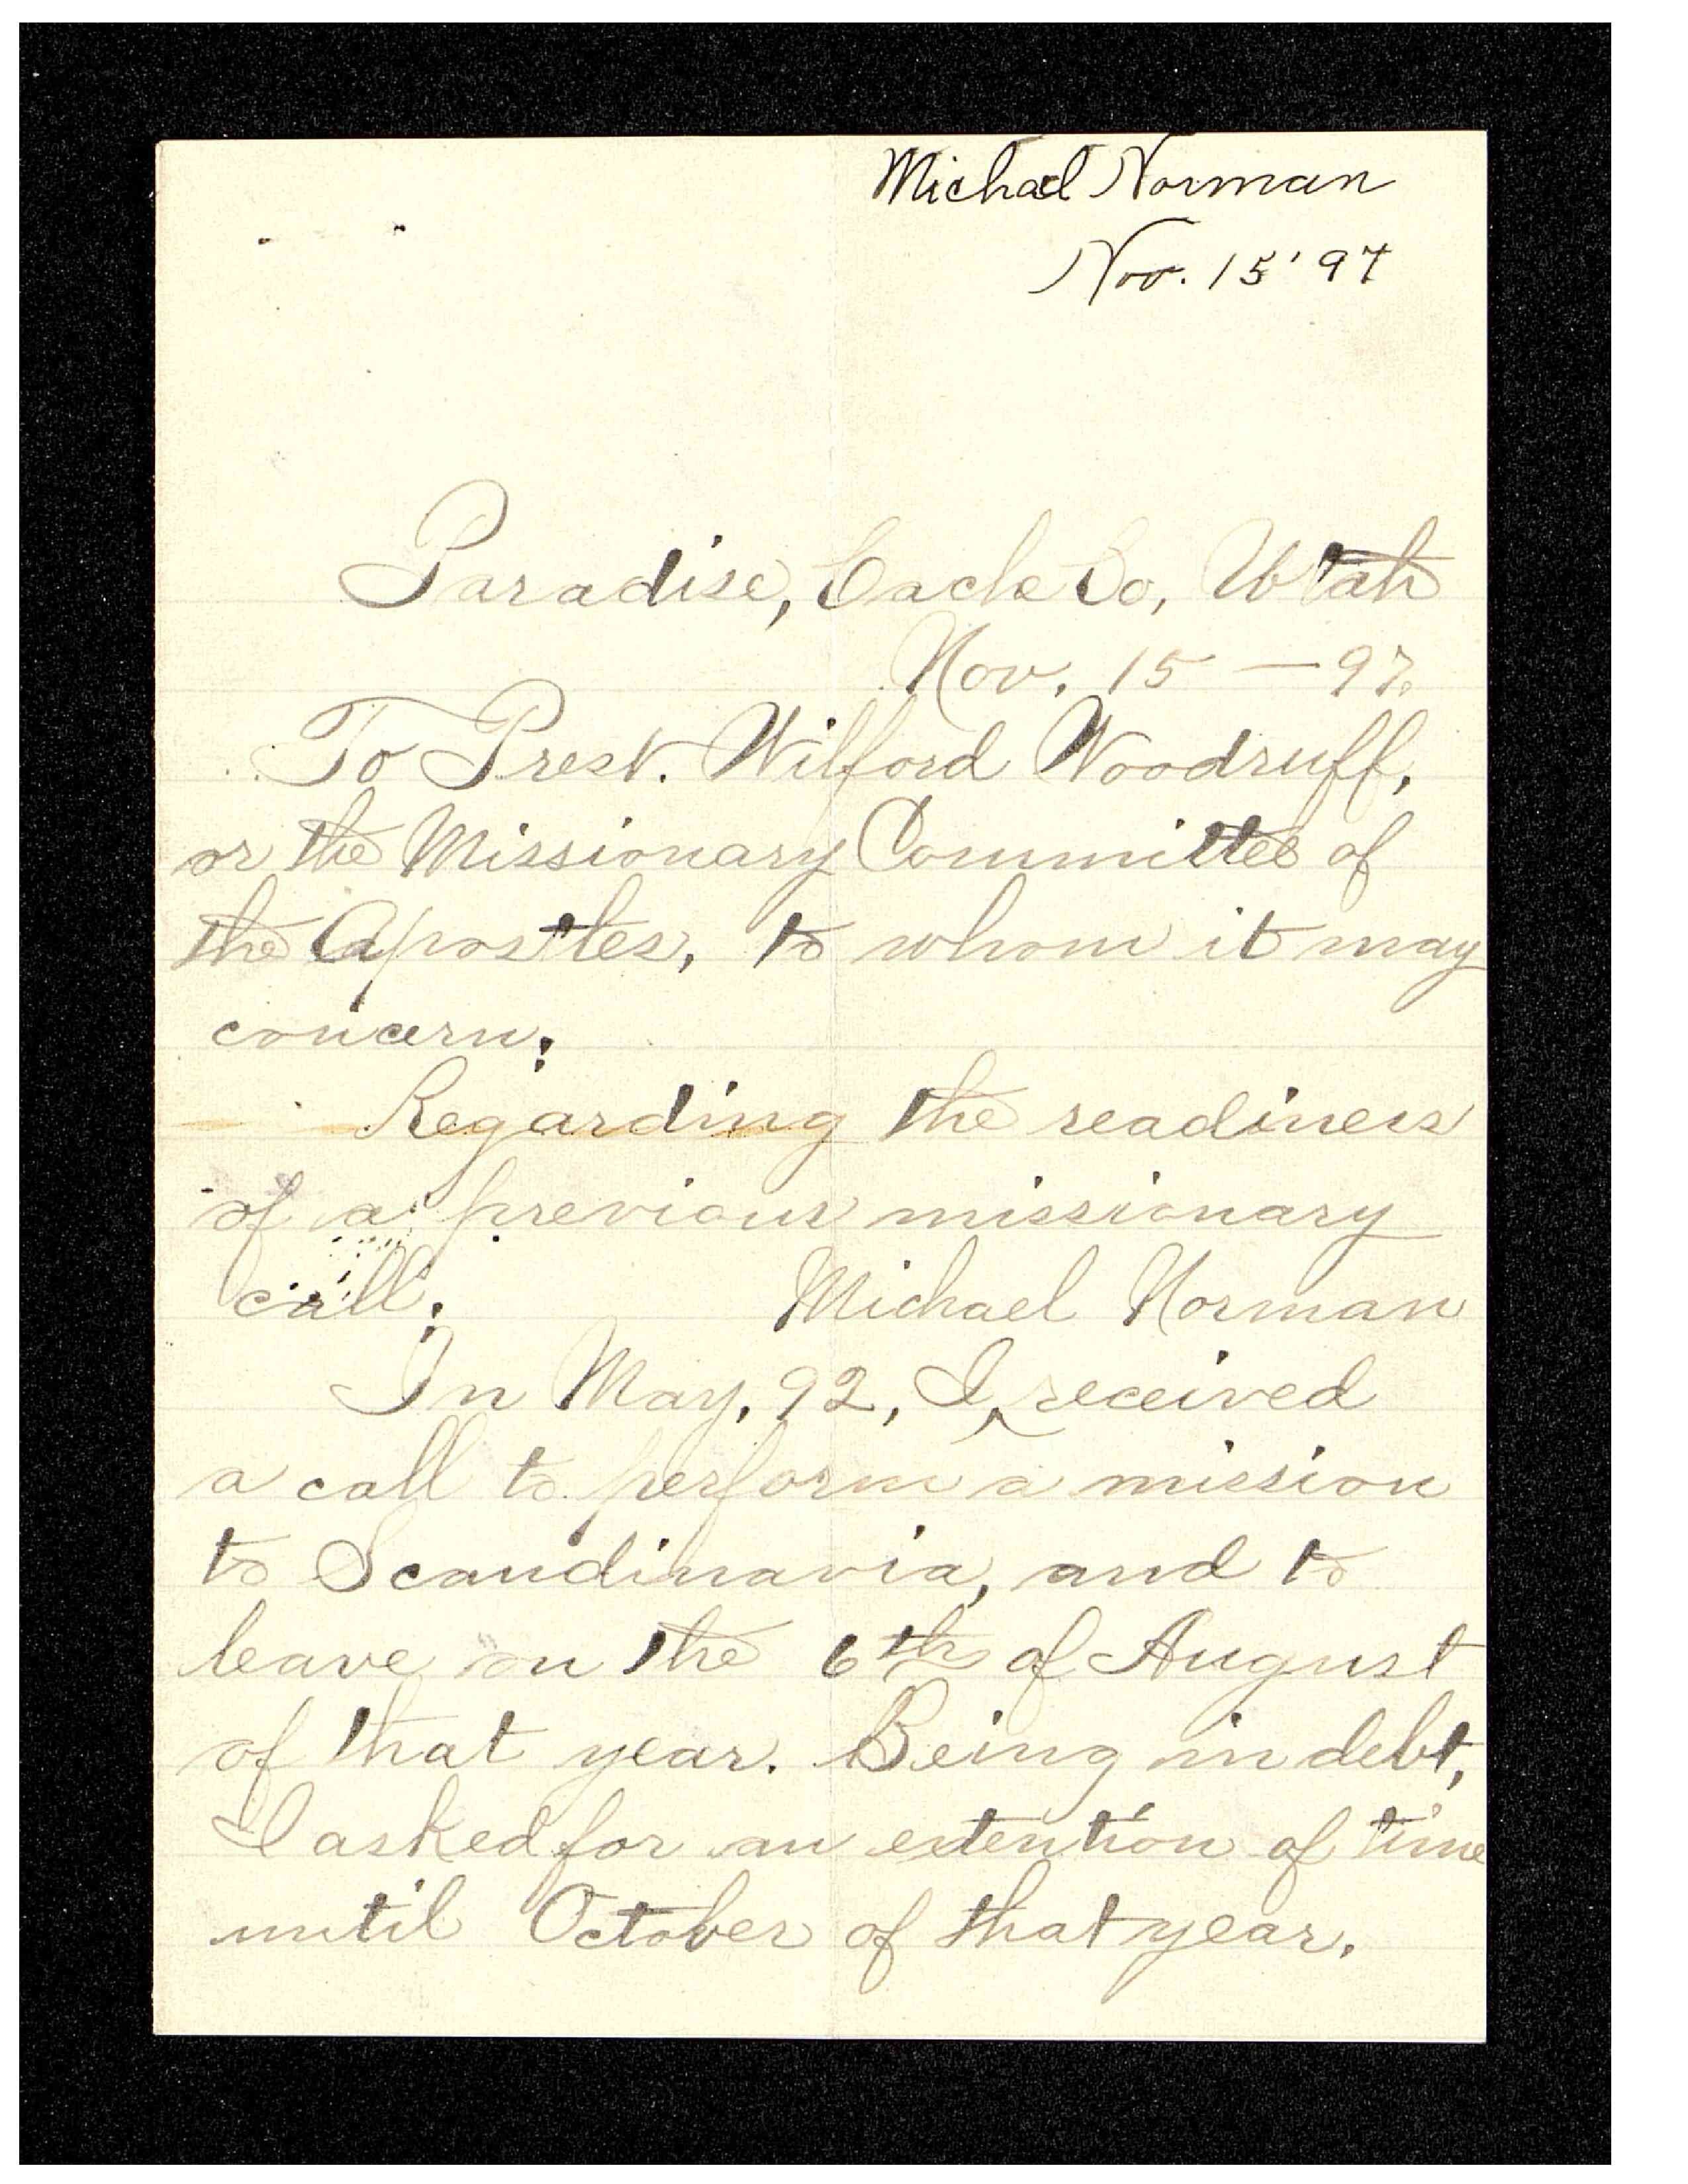 Michael Norman
Nov. 15 '97
Paradise, Cache Co, Utah
Nov. 15 — 97.
To Prest. Wilford Woodruff,
or the Missionary Committee of
the Apostles, to whom it may
concern;
Regarding the readiness
of a previous missionary
call. Michael Norman
In May, 92, I received
a call to perform a mission
to Scandinavia, and to
leave on the 6th of August
of that year. Being in debt,
I asked for an extention of time
until October of that year.